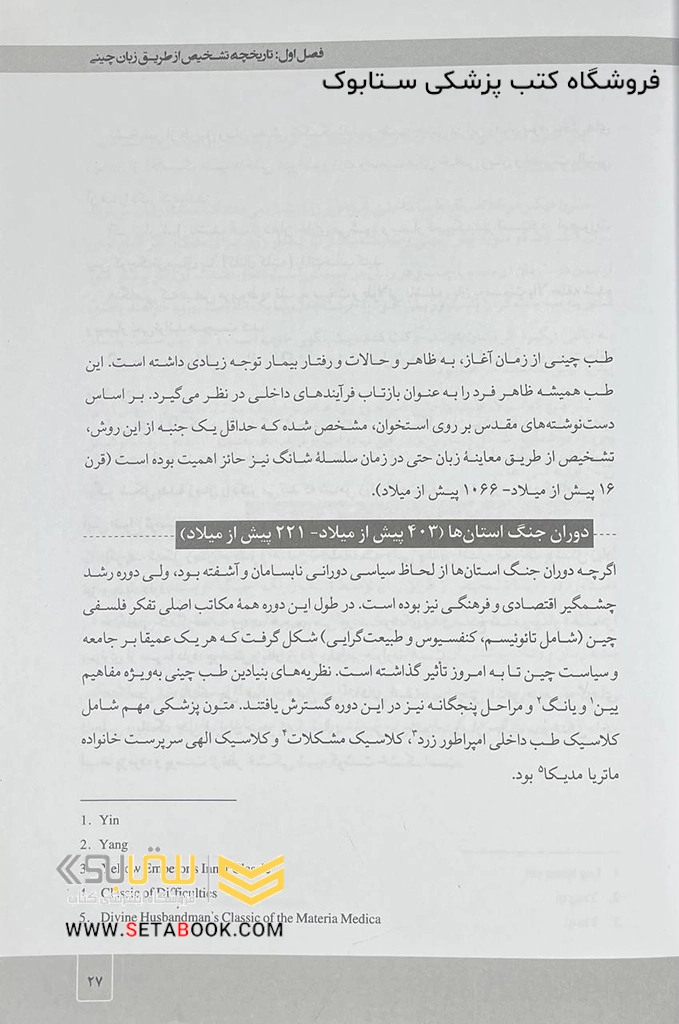 فصل اول: تاریخچه تشخیص از طریق زبان چینی
فروشگاه کتب پزشکی ستابوک
طب چینی از زمان آغاز، به ظاهر و حالات و رفتار بیمار توجه زیادی داشته است. این
طب همیشه ظاهر فرد را به عنوان بازتاب فرآیندهای داخلی در نظر می‌گیرد. بر اساس
دست‌نوشته‌های مقدس بر روی استخوان، مشخص شده که حداقل یک جنبه از این روش،
تشخیص از طریق معاینهٔ زبان حتی در زمان سلسلهٔ شانگ نیز حائز اهمیت بوده است (قرن
۱۶ پیش از میلاد- ۱۰۶۶ پیش از میلاد).
دوران جنگ استان‌ها (۴۰۳ پیش از میلاد- ۲۲۱ پیش از میلاد)
اگرچه دوران جنگ استان‌ها از لحاظ سیاسی دورانی نابسامان و آشفته بود، ولی دوره رشد
چشمگیر اقتصادی و فرهنگی نیز بوده است. در طول این دوره همهٔ مکاتب اصلی تفکر فلسفی
چین (شامل تائونیسم، کنفسیوس و طبیعت‌گرایی) شکل گرفت که هر یک عمیقا بر جامعه
و سیاست چین تا به امروز تأثیر گذاشته است. نظریه‌های بنیادین طب چینی به‌ویژه مفاهیم
یین۱ و یانگ۲ و مراحل پنجگانه نیز در این دوره گسترش یافتند. متون پزشکی مهم شامل
کلاسیک طب داخلی امپراطور زرد۳، کلاسیک مشکلات۴ و کلاسیک الهی سرپرست خانواده
ماتریا مدیکا۵ بود.
1. Yin
2. Yang
3. Yellow Emperor's Inner Classic
4. Classic of Difficulties
5. Divine Husbandman's Classic of the Materia Medica
ستابوک
فروشگاه اینترنتی کتاب
WWW.SETABOOK.COM
۲۷